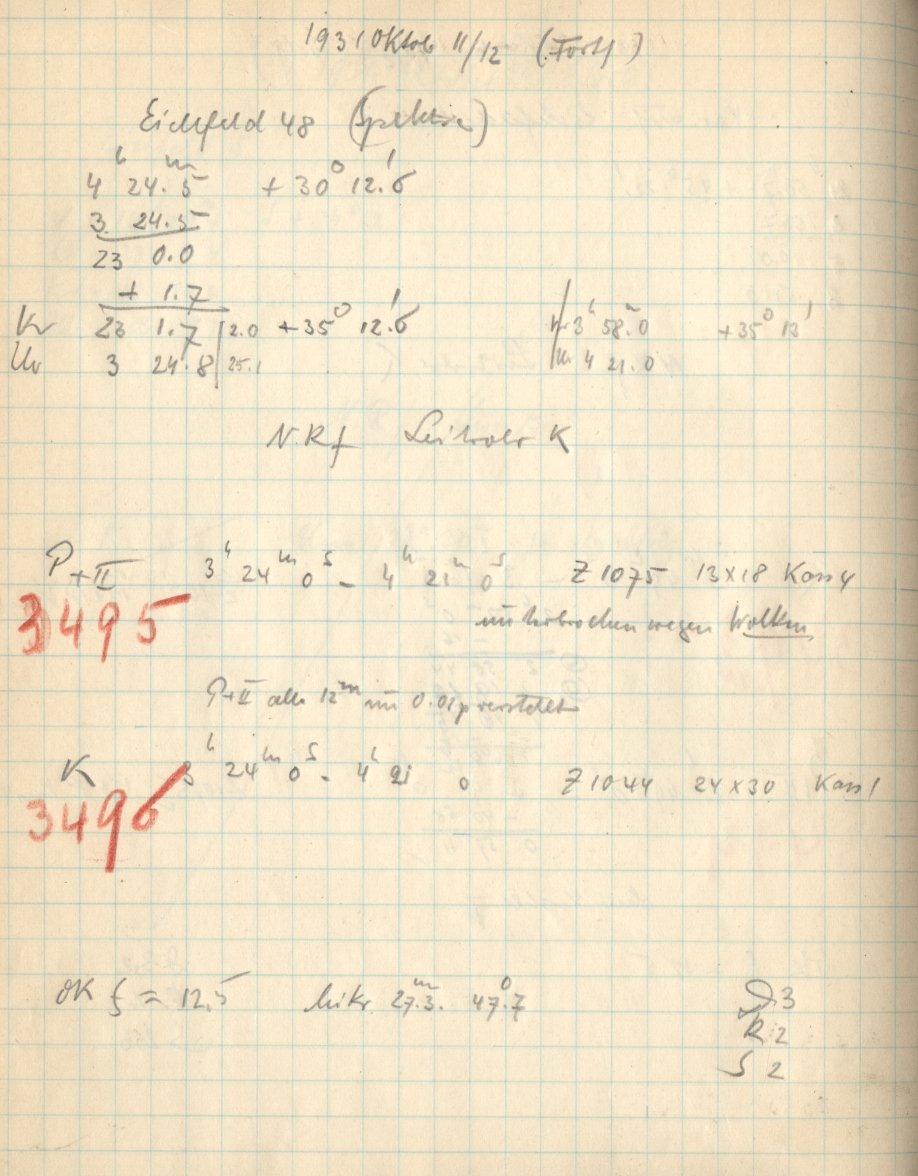 1931 Oktob 11/12 (Forts)
Eichfeld 48 (Spektren)
4ʰ 24.5ᵐ + 30° 12.'6
3 24.5
23 0.0
+ 1.7
Kr 23 1.7 | 2.0 + 35° 12.'6
Ur 3 24.8 | 25.1
Kr 3ʰ 58.ᵐ0 + 35° 13'
Ur 4 21.0
N R f Leitrohr K
P+II 3ʰ 24ᵐ 0ˢ - 4ʰ 21ᵐ 0ˢ Z 1075 13x18 Kass 4
3495
unterbrochen wegen Wolken
P+II alle 12ᵐ um 0.01p verstellt
K 3ʰ 24ᵐ 0ˢ - 4ʰ 21 0 Z 1044 24x30 Kass 1
3496
OK f = 12.5 Mikr 27.3ᵐᵐ. 47.°7
D 3
R 2
S 2